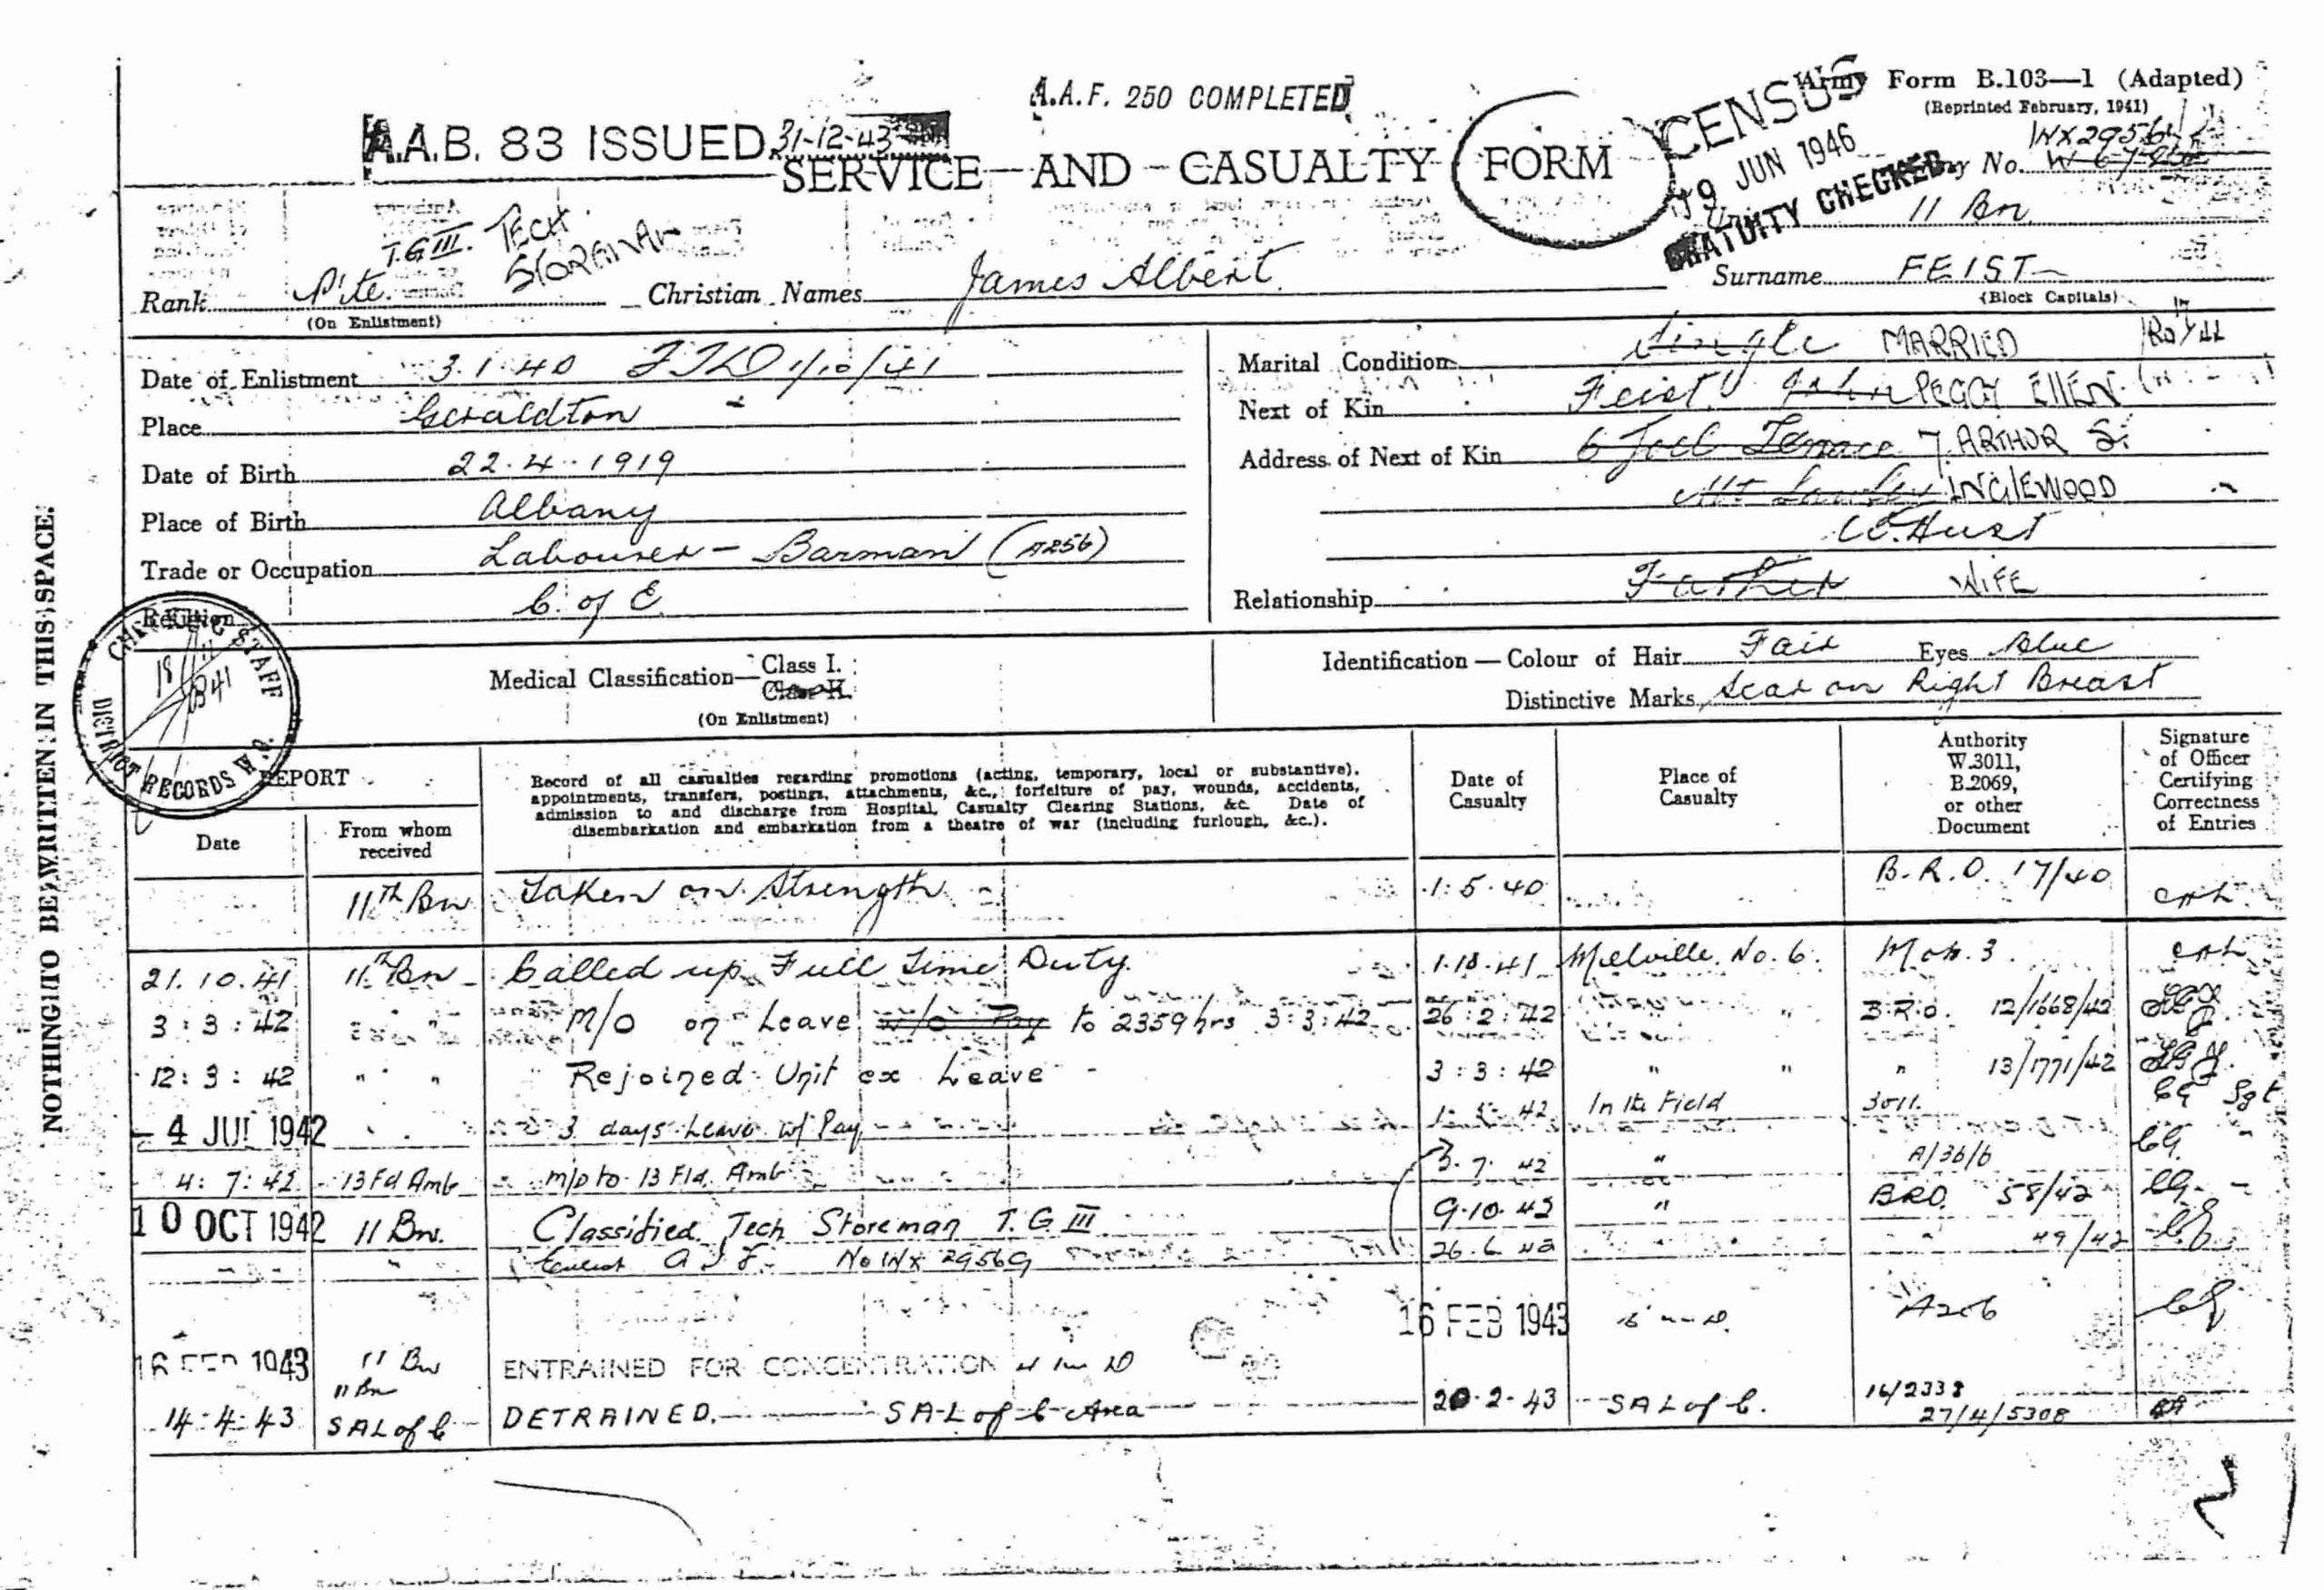 A.A.F. 250 COMPLETED
Army Form B.103—1 (Adapted)
(Reprinted February, 1941)
A.A.B. 83 ISSUED 31-12-43
CENSUS
19 JUN 1946
GRATUITY CHECKED
SERVICE AND CASUALTY FORM
No.
11 Bn
T.G III. TECH STOREMAN
Rank Pite. Christian Names James Albert. Surname FEIST
(On Enlistment) (Block Capitals)
Date of Enlistment 3.1.40 FTD 1/10/41
Marital Condition Single MARRIED
Place Geraldton
Next of Kin Feist John PEGGY ELLEN
Date of Birth 22.4.1919
Address of Next of Kin 6 Joel Terrace 7 ARTHUR St
Place of Birth Albany
Mt Lawley INGLEWOOD
Trade or Occupation Labourer – Barman (A256)
W. Aust
Religion C. of E.
Relationship Father WIFE
DISTRICT RECORDS W.A.
NOTHING TO BE WRITTEN IN THIS SPACE.
Medical Classification— Class I.
Class II.
(On Enlistment)
Identification — Colour of Hair Fair Eyes Blue
Distinctive Marks Scar on Right Breast
REPORT
Date
From whom received
Record of all casualties regarding promotions (acting, temporary, local or substantive),
appointments, transfers, postings, attachments, &c., forfeiture of pay, wounds, accidents,
admission to and discharge from Hospital, Casualty Clearing Stations, &c. Date of
disembarkation and embarkation from a theatre of war (including furlough, &c.).
Date of Casualty
Place of Casualty
Authority W.3011, B.2069, or other Document
Signature of Officer Certifying Correctness of Entries
11th Bn Taken on Strength 1.5.40 B.R.O. 17/40
21.10.41 11th Bn Called up Full Time Duty. 1.10.41 Melville No. 6. Mob. 3.
3:3:42 " " M/O on Leave w/o Pay to 2359hrs 3:3:42 26:2:42 " B.R.O. 12/1668/42
12:3:42 " " Rejoined Unit ex Leave 3:3:42 " " " 13/1771/42
4 JUL 1942 3 days Leave w/ Pay 1.5.42 In the Field 3011. Sgt
4:7:42 13 Fd Amb m/o to 13 Fld. Amb 3.7.42 " A/36/6
10 OCT 1942 11 Bn. Classified Tech Storeman T.G III 9.10.42 " BRO. 58/42
" Enlist A I F. No WX 29569 26.6.42 " 49/42
16 FEB 1943 11 Bn ENTRAINED FOR CONCENTRATION 16 FEB 1943
14-4-43 11 Bn SAL of C DETRAINED. SAL of C Area 20-2-43 SAL of C. 27/4/5308